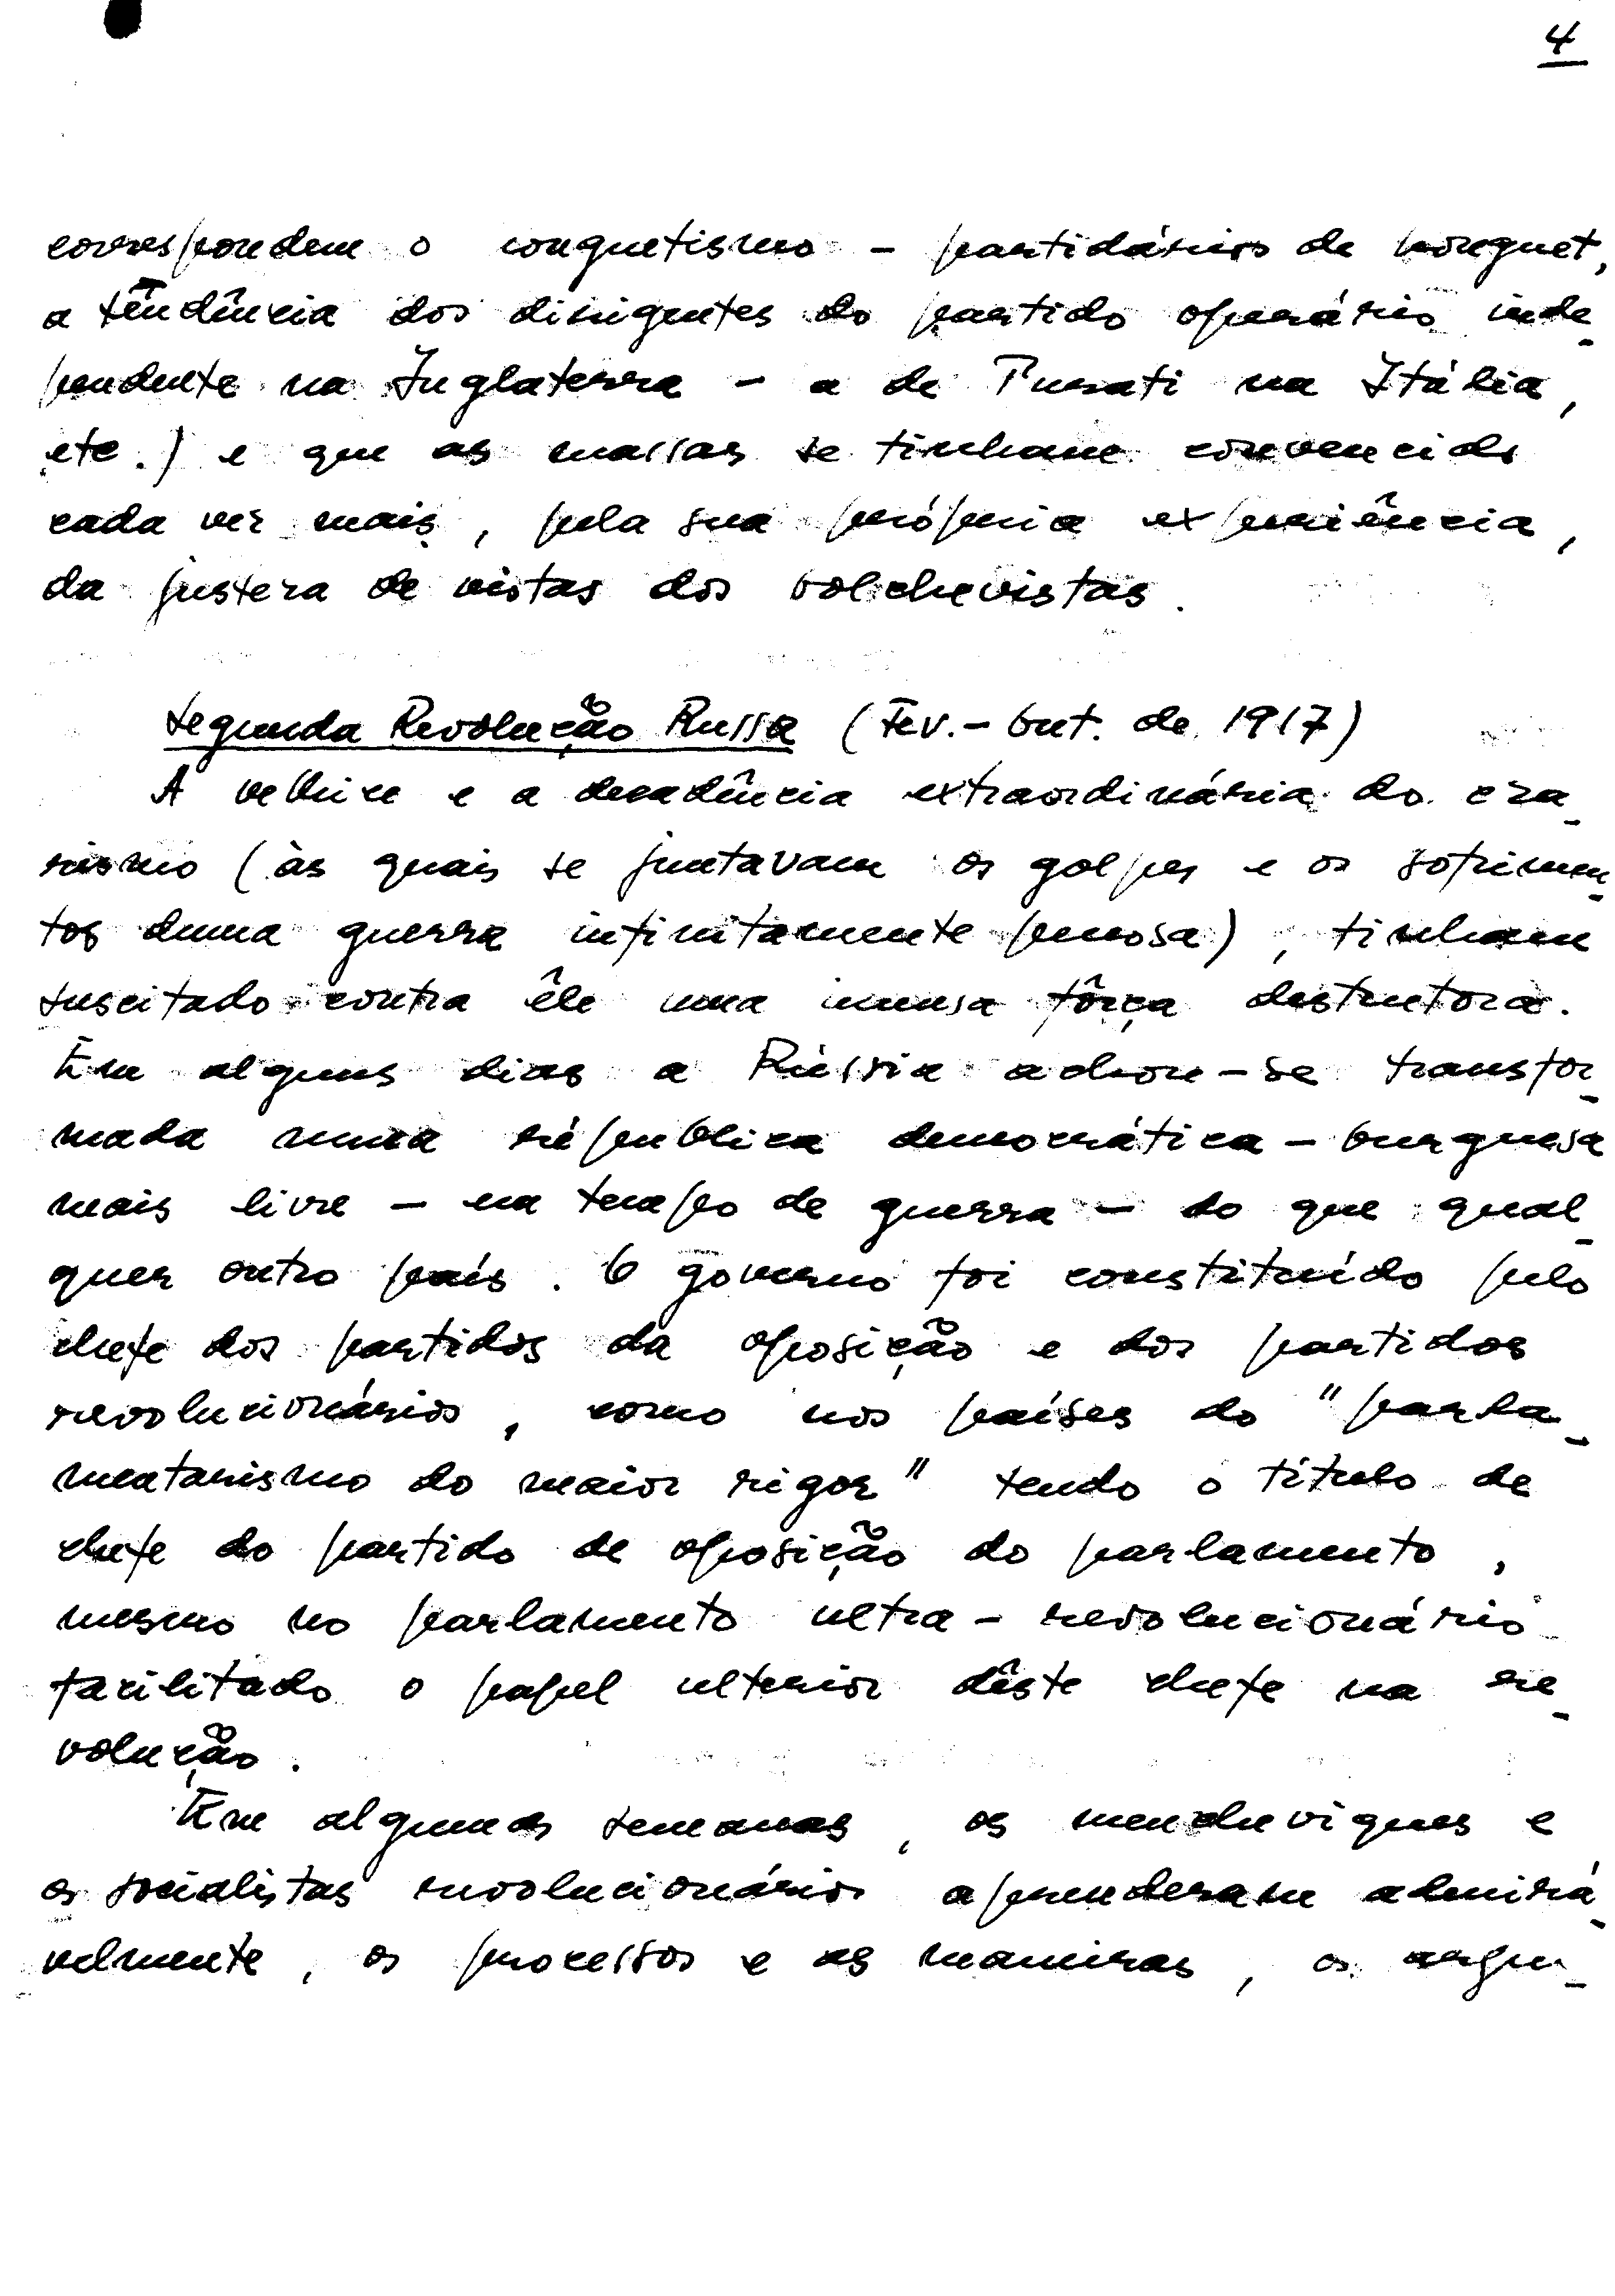 4
correspondem o conguetismo - partidários de Longuet,
a têndência dos dirigentes do partido operário inde_
pendente na Inglaterra - a de Turati na Itália,
etc.) e que as massas se tinham convencido
cada vez mais, pela sua própria experiência,
da justeza de vistas dos bolchevistas.
Segunda Revolução Russa (Fev. - Out. de 1917)
A velhice e a decadência extraordinária do cza_
rismo (às quais se juntavam os golpes e os sofrimen_
tos duma guerra infinitamente penosa), tinham
suscitado contra êle uma imensa fôrça destrutora.
Em alguns dias a Rússia achou-se transfor_
mada numa república democrática - burguesa
mais livre - em tempo de guerra - do que qual_
quer outro país. O governo foi constituído pelo
chefe dos partidos da oposição e dos partidos
revolucionários, como nos países do "parla_
mentarismo do maior rigor" tendo o título de
chefe do partido de oposição do parlamento,
mesmo no parlamento ultra - revolucionário
facilitado o papel ulterior dêste chefe na re_
volução.
Em algumas semanas, os mencheviques e
os socialistas revolucionários aprenderam admirá_
velmente, os processos e as maneiras, os argu_